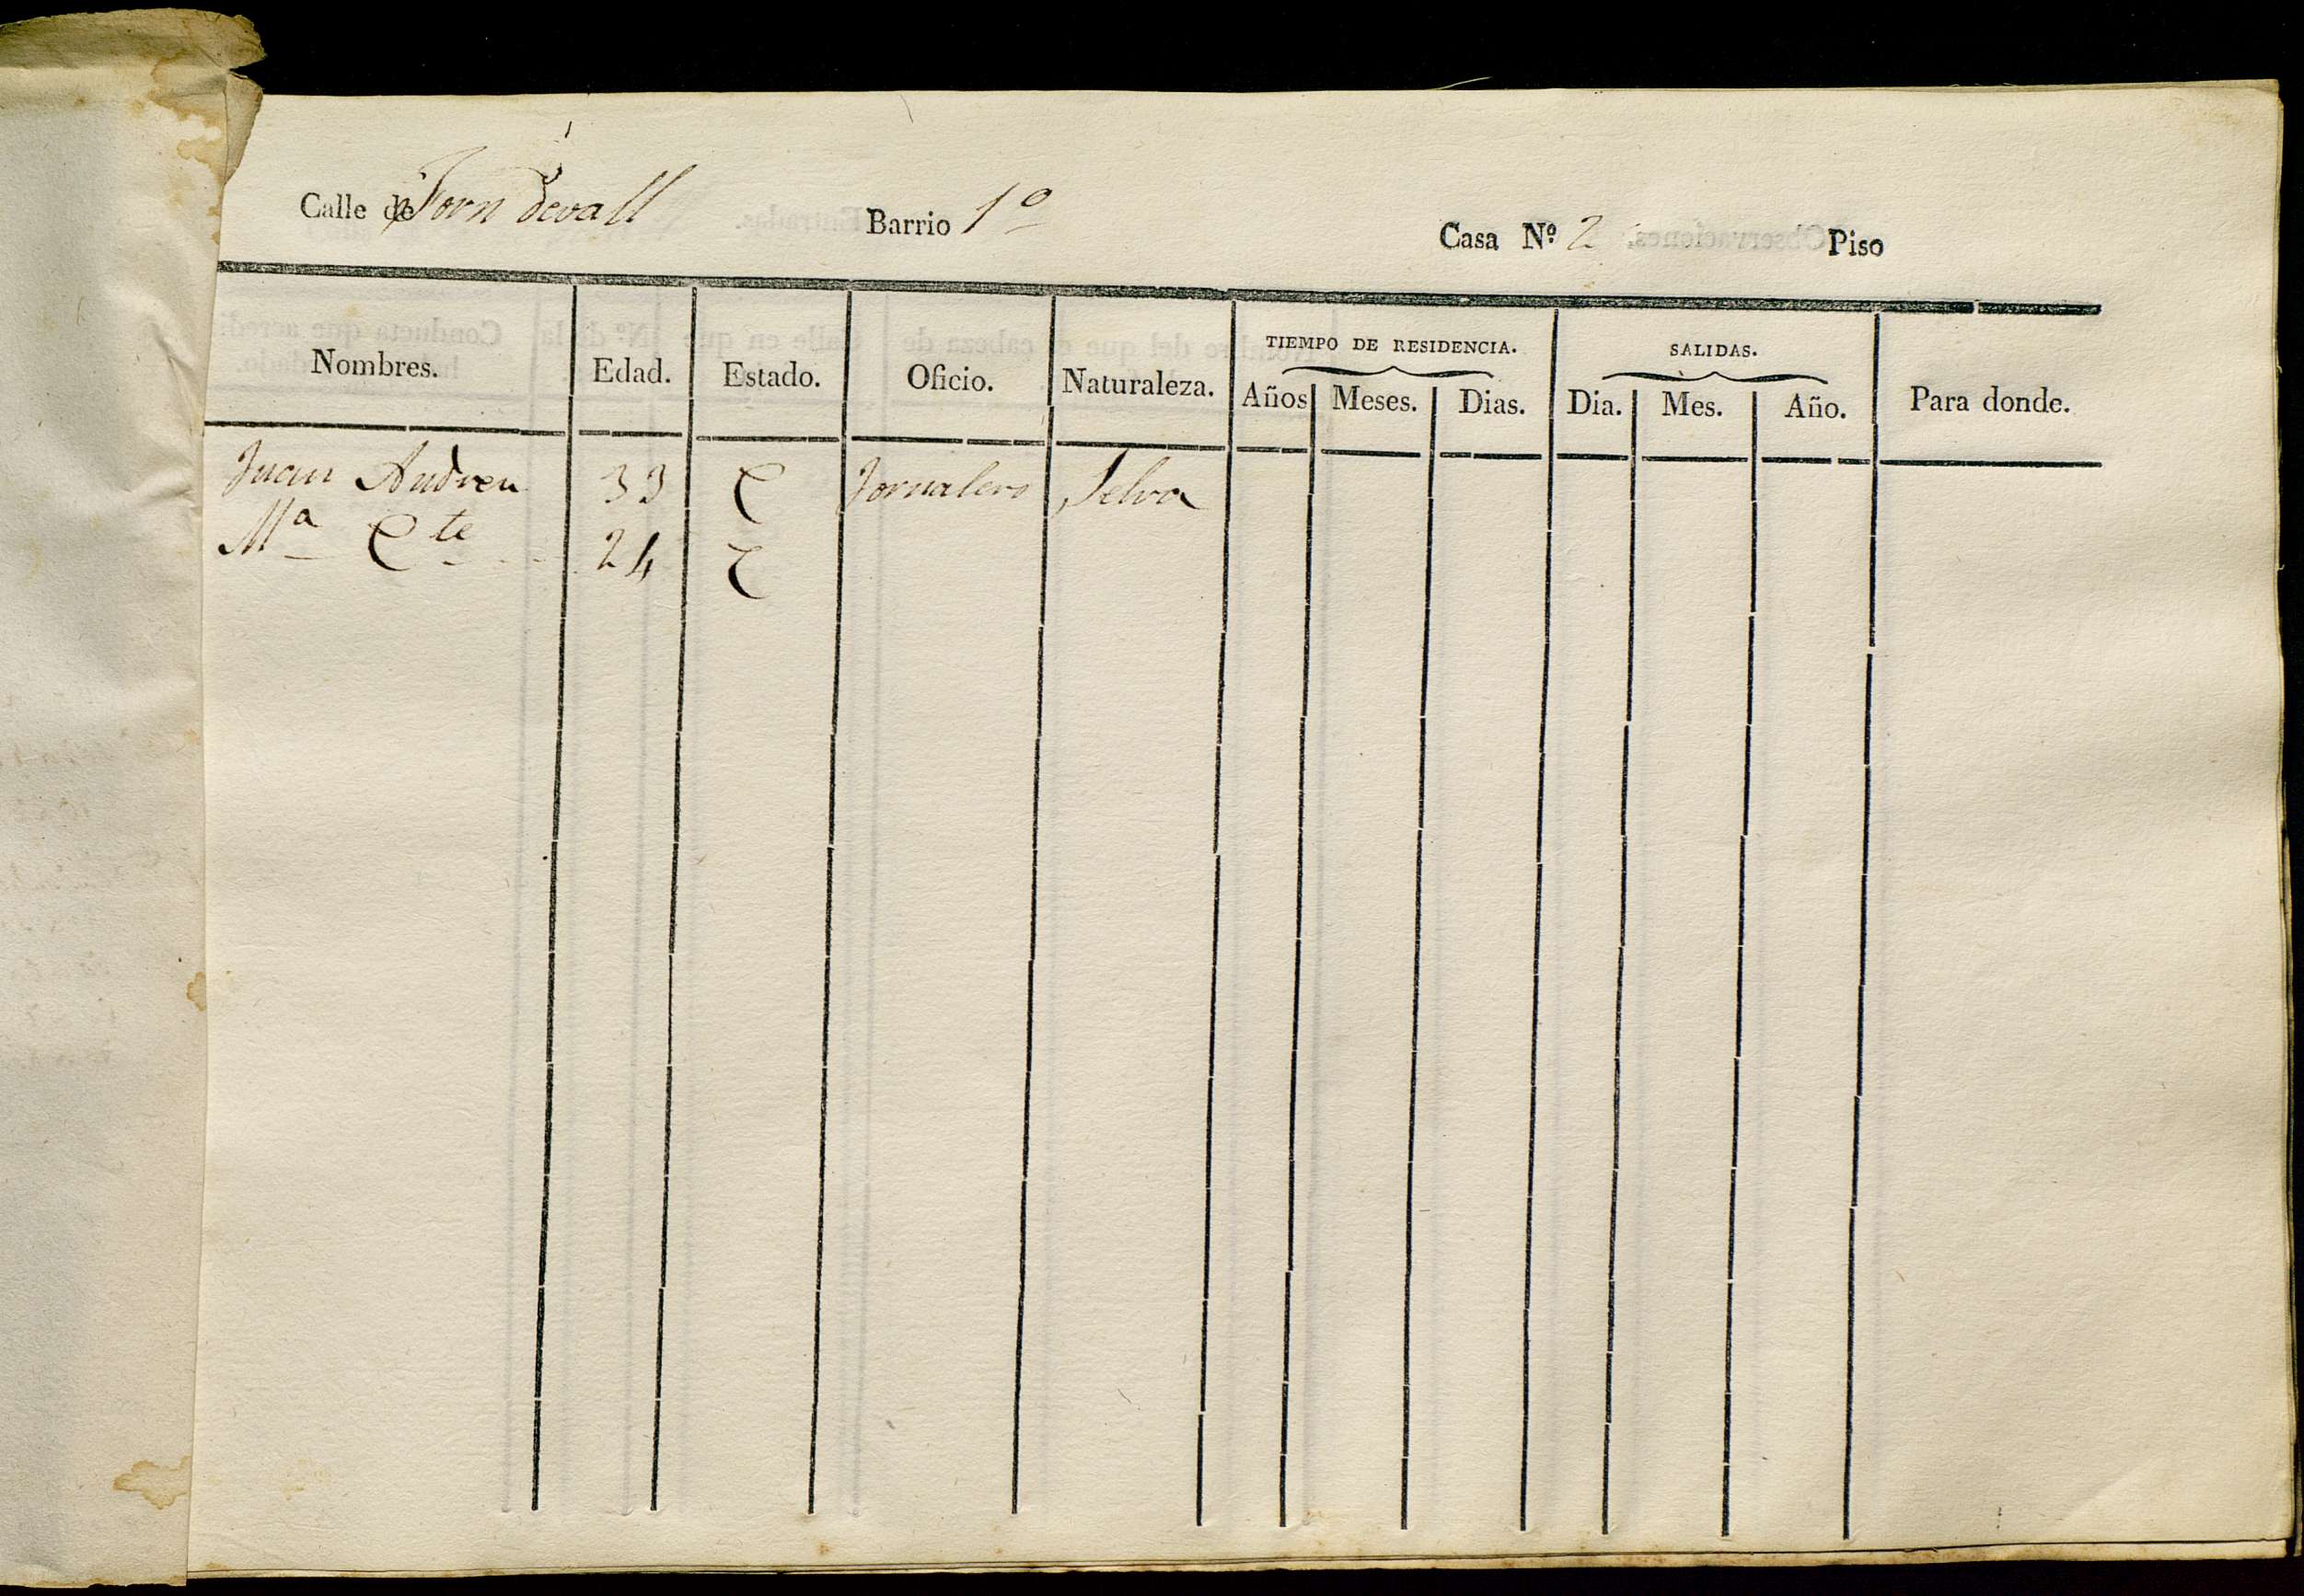 Calle de Forn devall Barrio 1º Casa Nº 2 Piso
TIEMPO DE RESIDENCIA. SALIDAS.
Nombres. Edad. Estado. Oficio. Naturaleza. Años Meses. Dias. Dia. Mes. Año. Para donde.
Juan Andreu 33 C Jornalero Selva
Mª C te 24 C